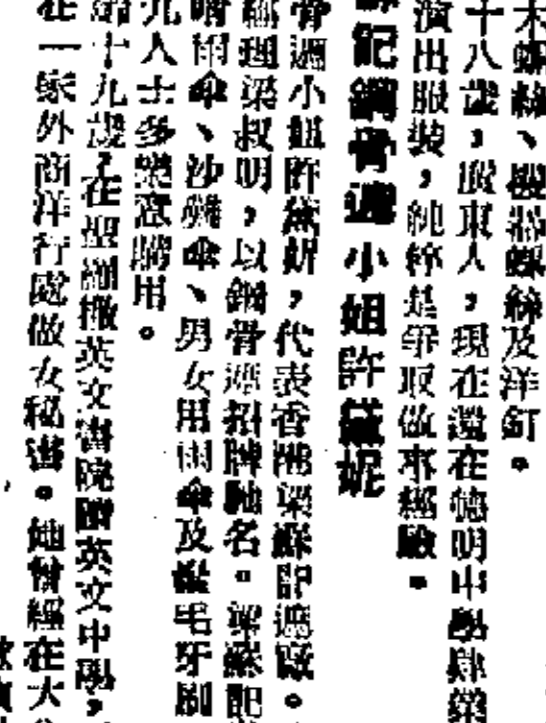 木螺絲、機器螺絲及洋釘。
十八歲，股東人，現在還在德明中學肄業
演出服裝，純粹是爭取做來經驗。
記鋼骨遮小姐許黛妮
骨遮小姐許黛妍，代表香港梁蘇記遮廠。
經理梁叔明，以鋼骨遮招牌馳名。梁蘇記
晴雨傘、沙灘傘、男女用雨傘及毛牙刷
凡人士多樂意購用。
齡十九歲，在聖瑚撒英文書院讀英文中學，
在一家外商洋行處做女秘書。她曾經在大